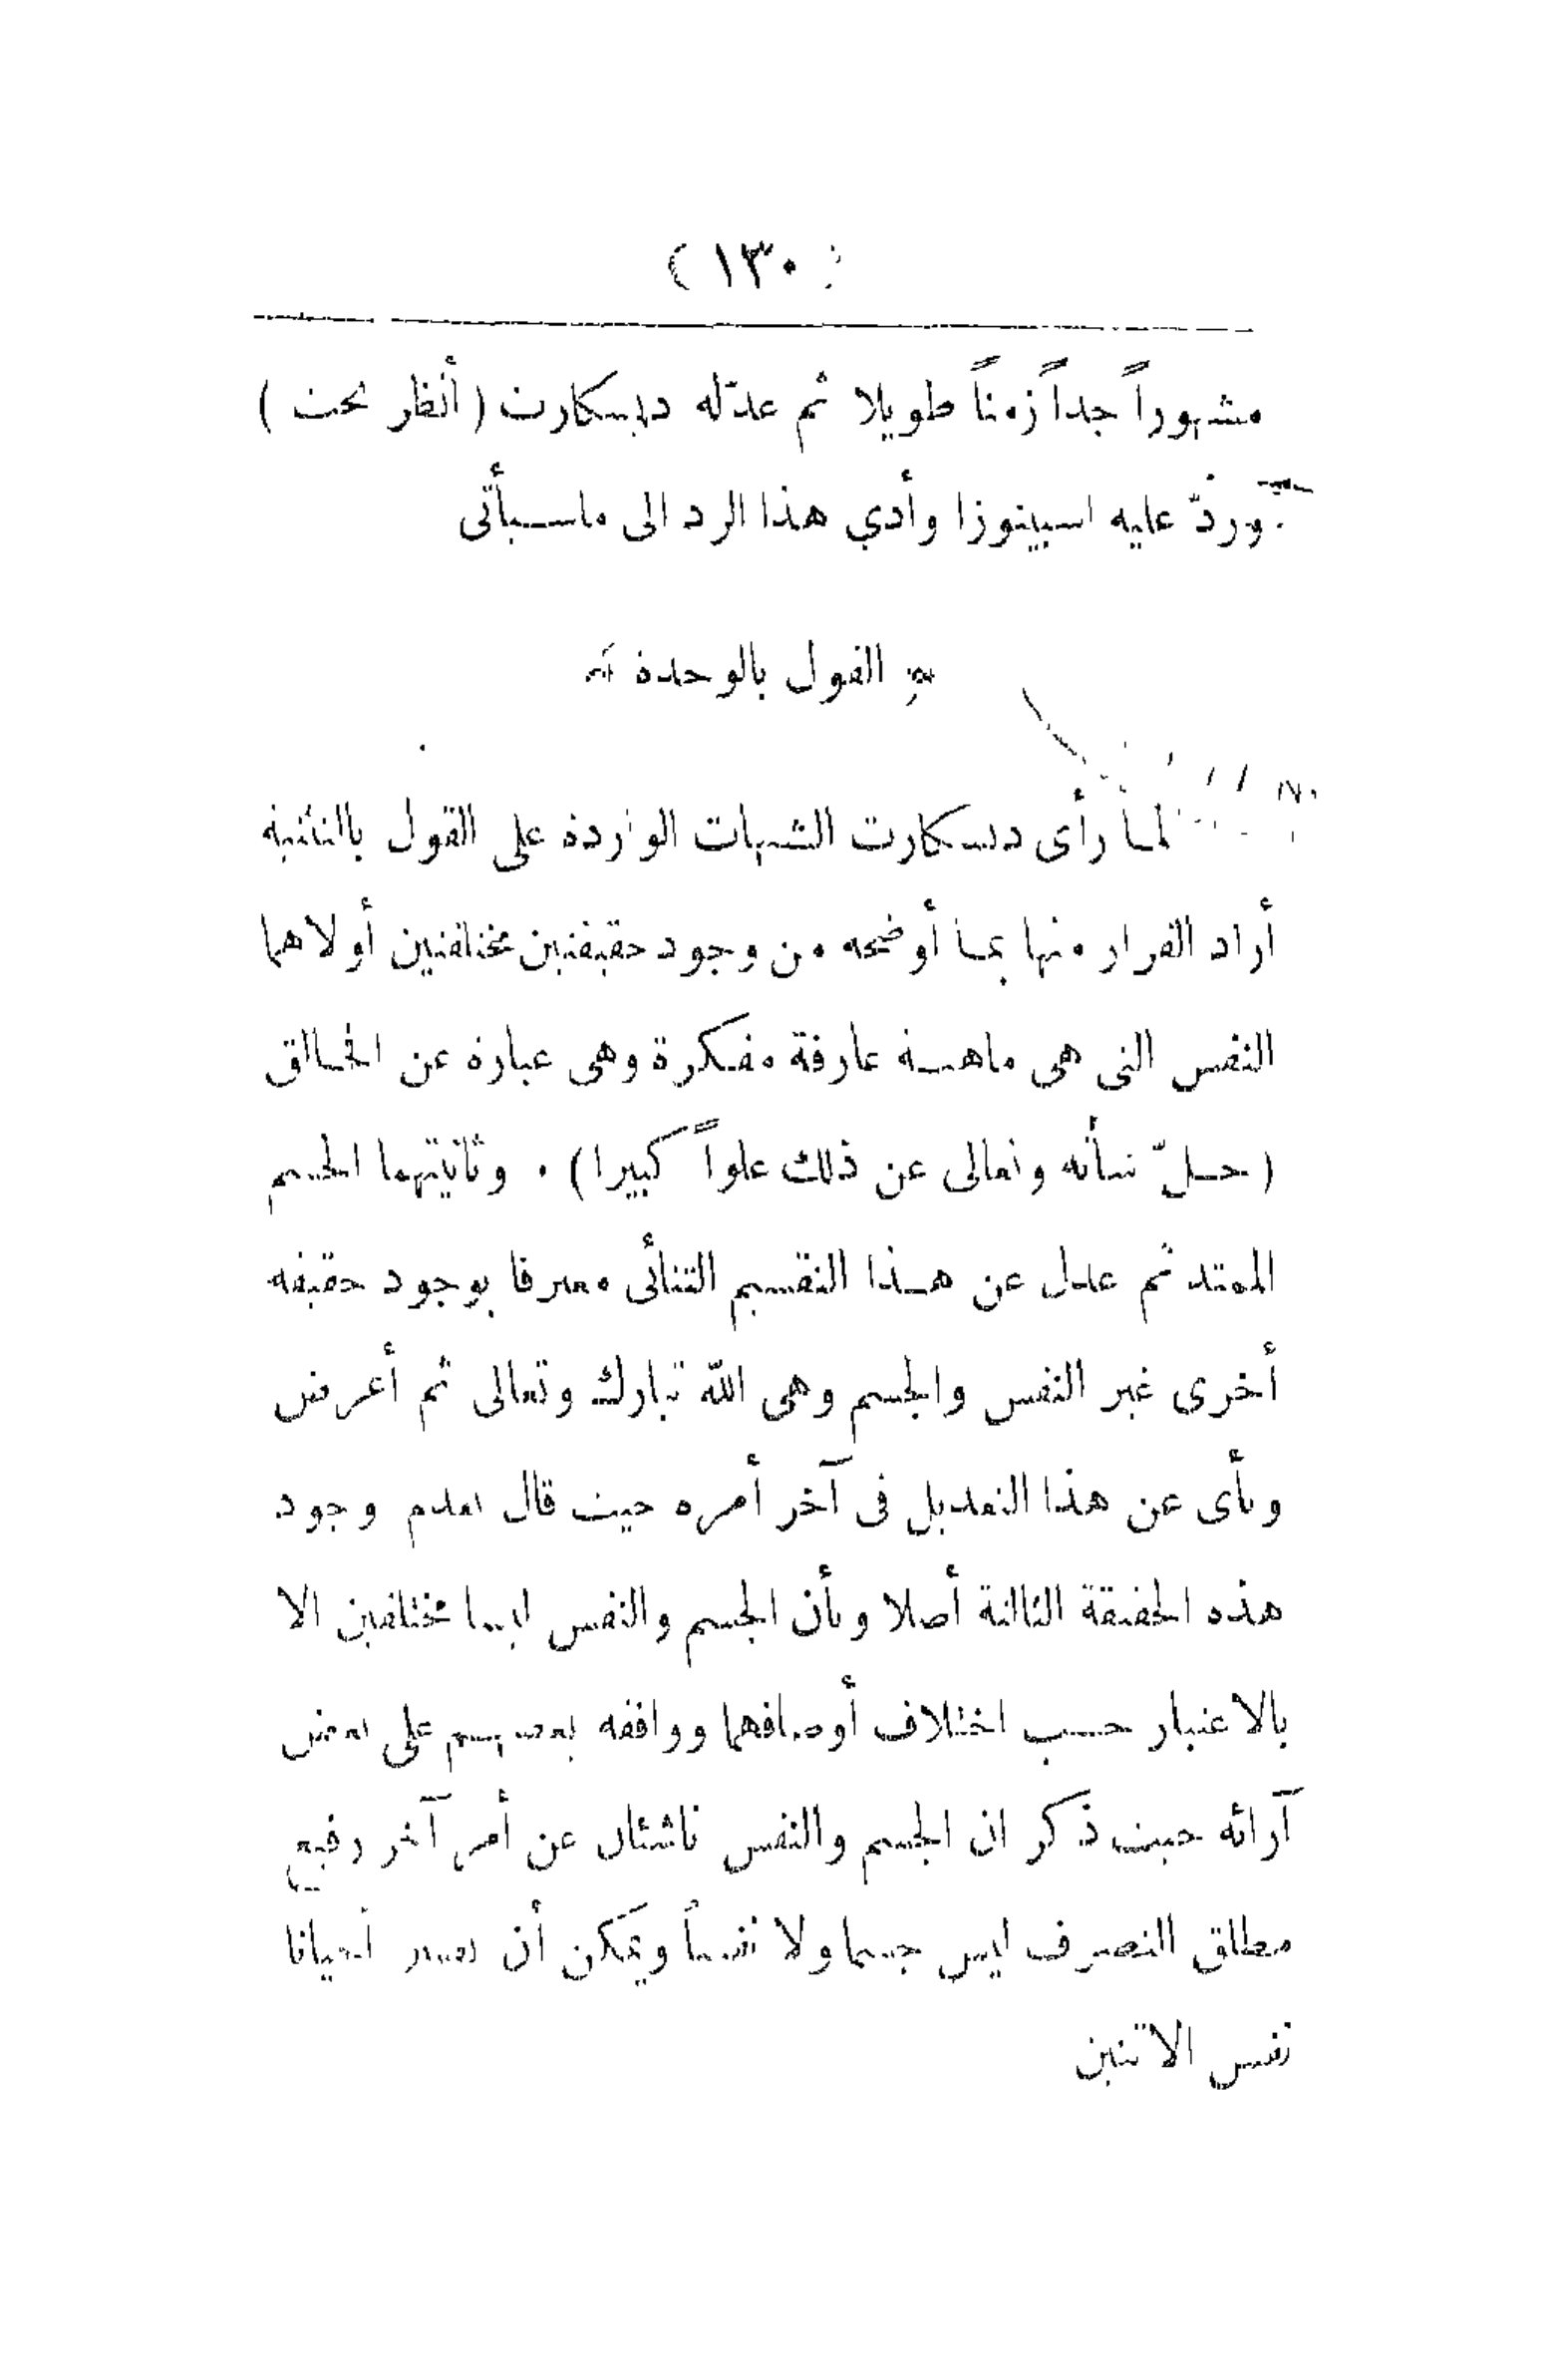 ( ١٣٠ )
مشهوراً جداً زمناً طويلا ثم عدّله ديسكارت ( أنظر تحت )
وردّ عليه اسبينوزا وأدي هذا الرد الى ماسيأتى
القول بالوحدة
لما رأى ديسكارت الشبهات الواردة على القول بالتثنية
أراد الفرار منها بما أوضحه من وجود حقيقتين مختلفتين أولاهما
النفس التى هى ماهية عارفة مفكرة وهى عبارة عن الخالق
( جلّ شأنه وتعالى عن ذلك علواً كبيرا ) . وثانيتهما الجسم
الممتد ثم عدل عن هذا التقسيم الثنائى معترفا بوجود حقيقة
أخرى غير النفس والجسم وهى الله تبارك وتعالى ثم أعرض
ونأى عن هذا التعديل فى آخر أمره حيث قال بعدم وجود
هذه الحقيقة الثالثة أصلا وبأن الجسم والنفس ليسا مختلفين الا
بالاعتبار حسب اختلاف أوصافهما ووافقه بعضهم على بعض
آرائه حيث ذكر ان الجسم والنفس ناشئان عن أمر آخر رفيع
مطلق التصرف ليس جسما ولا نفساً ويمكن أن يعتبر أحيانا
نفس الاثنين